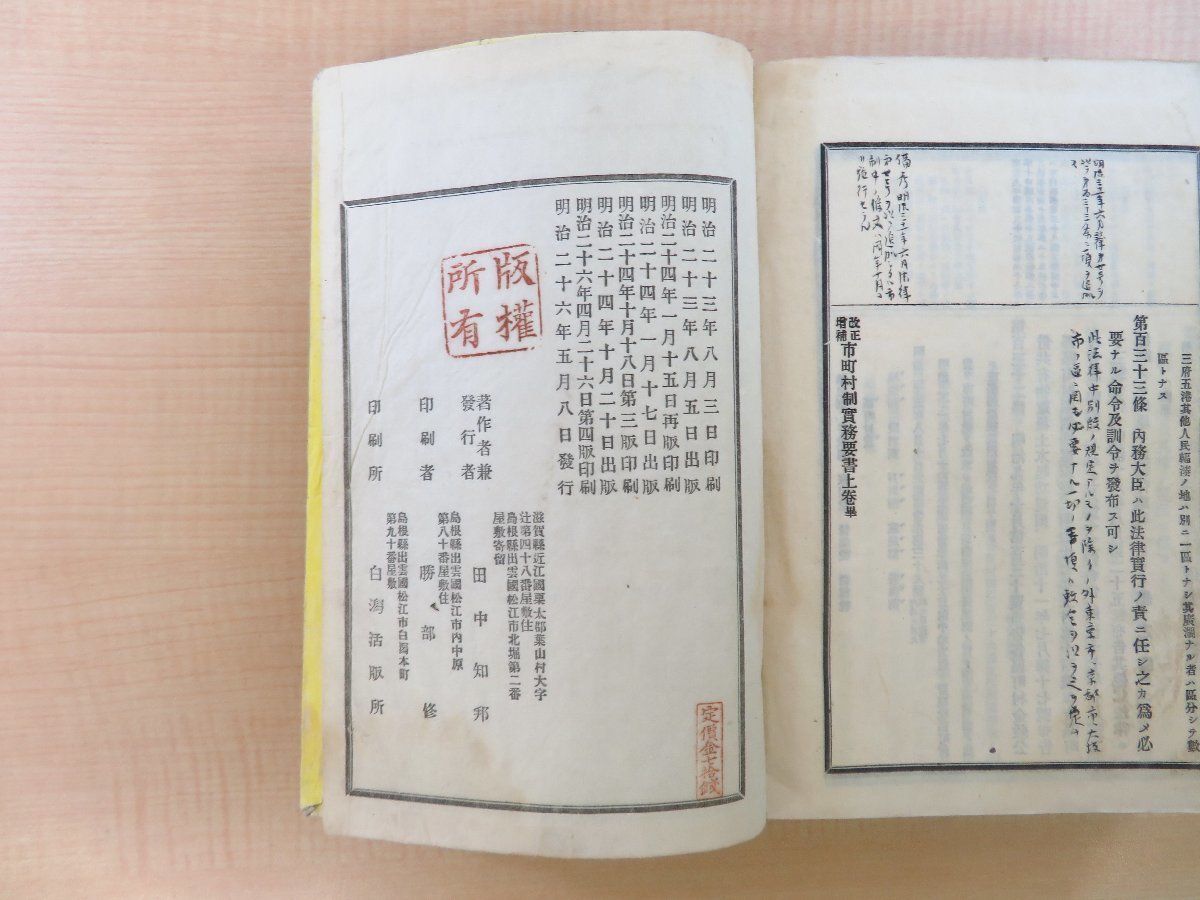 三府五港其他人民輻湊ノ地ハ別ニ一區トナシ其廣濶ナル者ハ區分シテ數
區トナス
第百三十三條 內務大臣ハ此法律實行ノ責ニ任シ之カ爲メ必
要ナル命令及訓令ヲ發布ス可シ
改正
增補
市町村制實務要書上卷畢
明治二十三年八月三日印刷
明治二十三年八月五日出版
明治二十四年一月十五日再版印刷
明治二十四年一月十七日出版
明治二十四年十月十八日第三版印刷
明治二十四年十月二十日出版
明治二十六年四月二十六日第四版印刷
明治二十六年五月八日發行
版權
所有
滋賀縣近江國栗太郡葉山村大字
辻第四十八番屋敷住
島根縣出雲國松江市北堀第二番
屋敷寄留
著作者兼
發行者
田中知邦
島根縣出雲國松江市內中原
第八十番屋敷住
印刷者
勝部修
島根縣出雲國松江市白潟本町
第九十番屋敷
印刷所
白潟活版所
定價金七拾錢